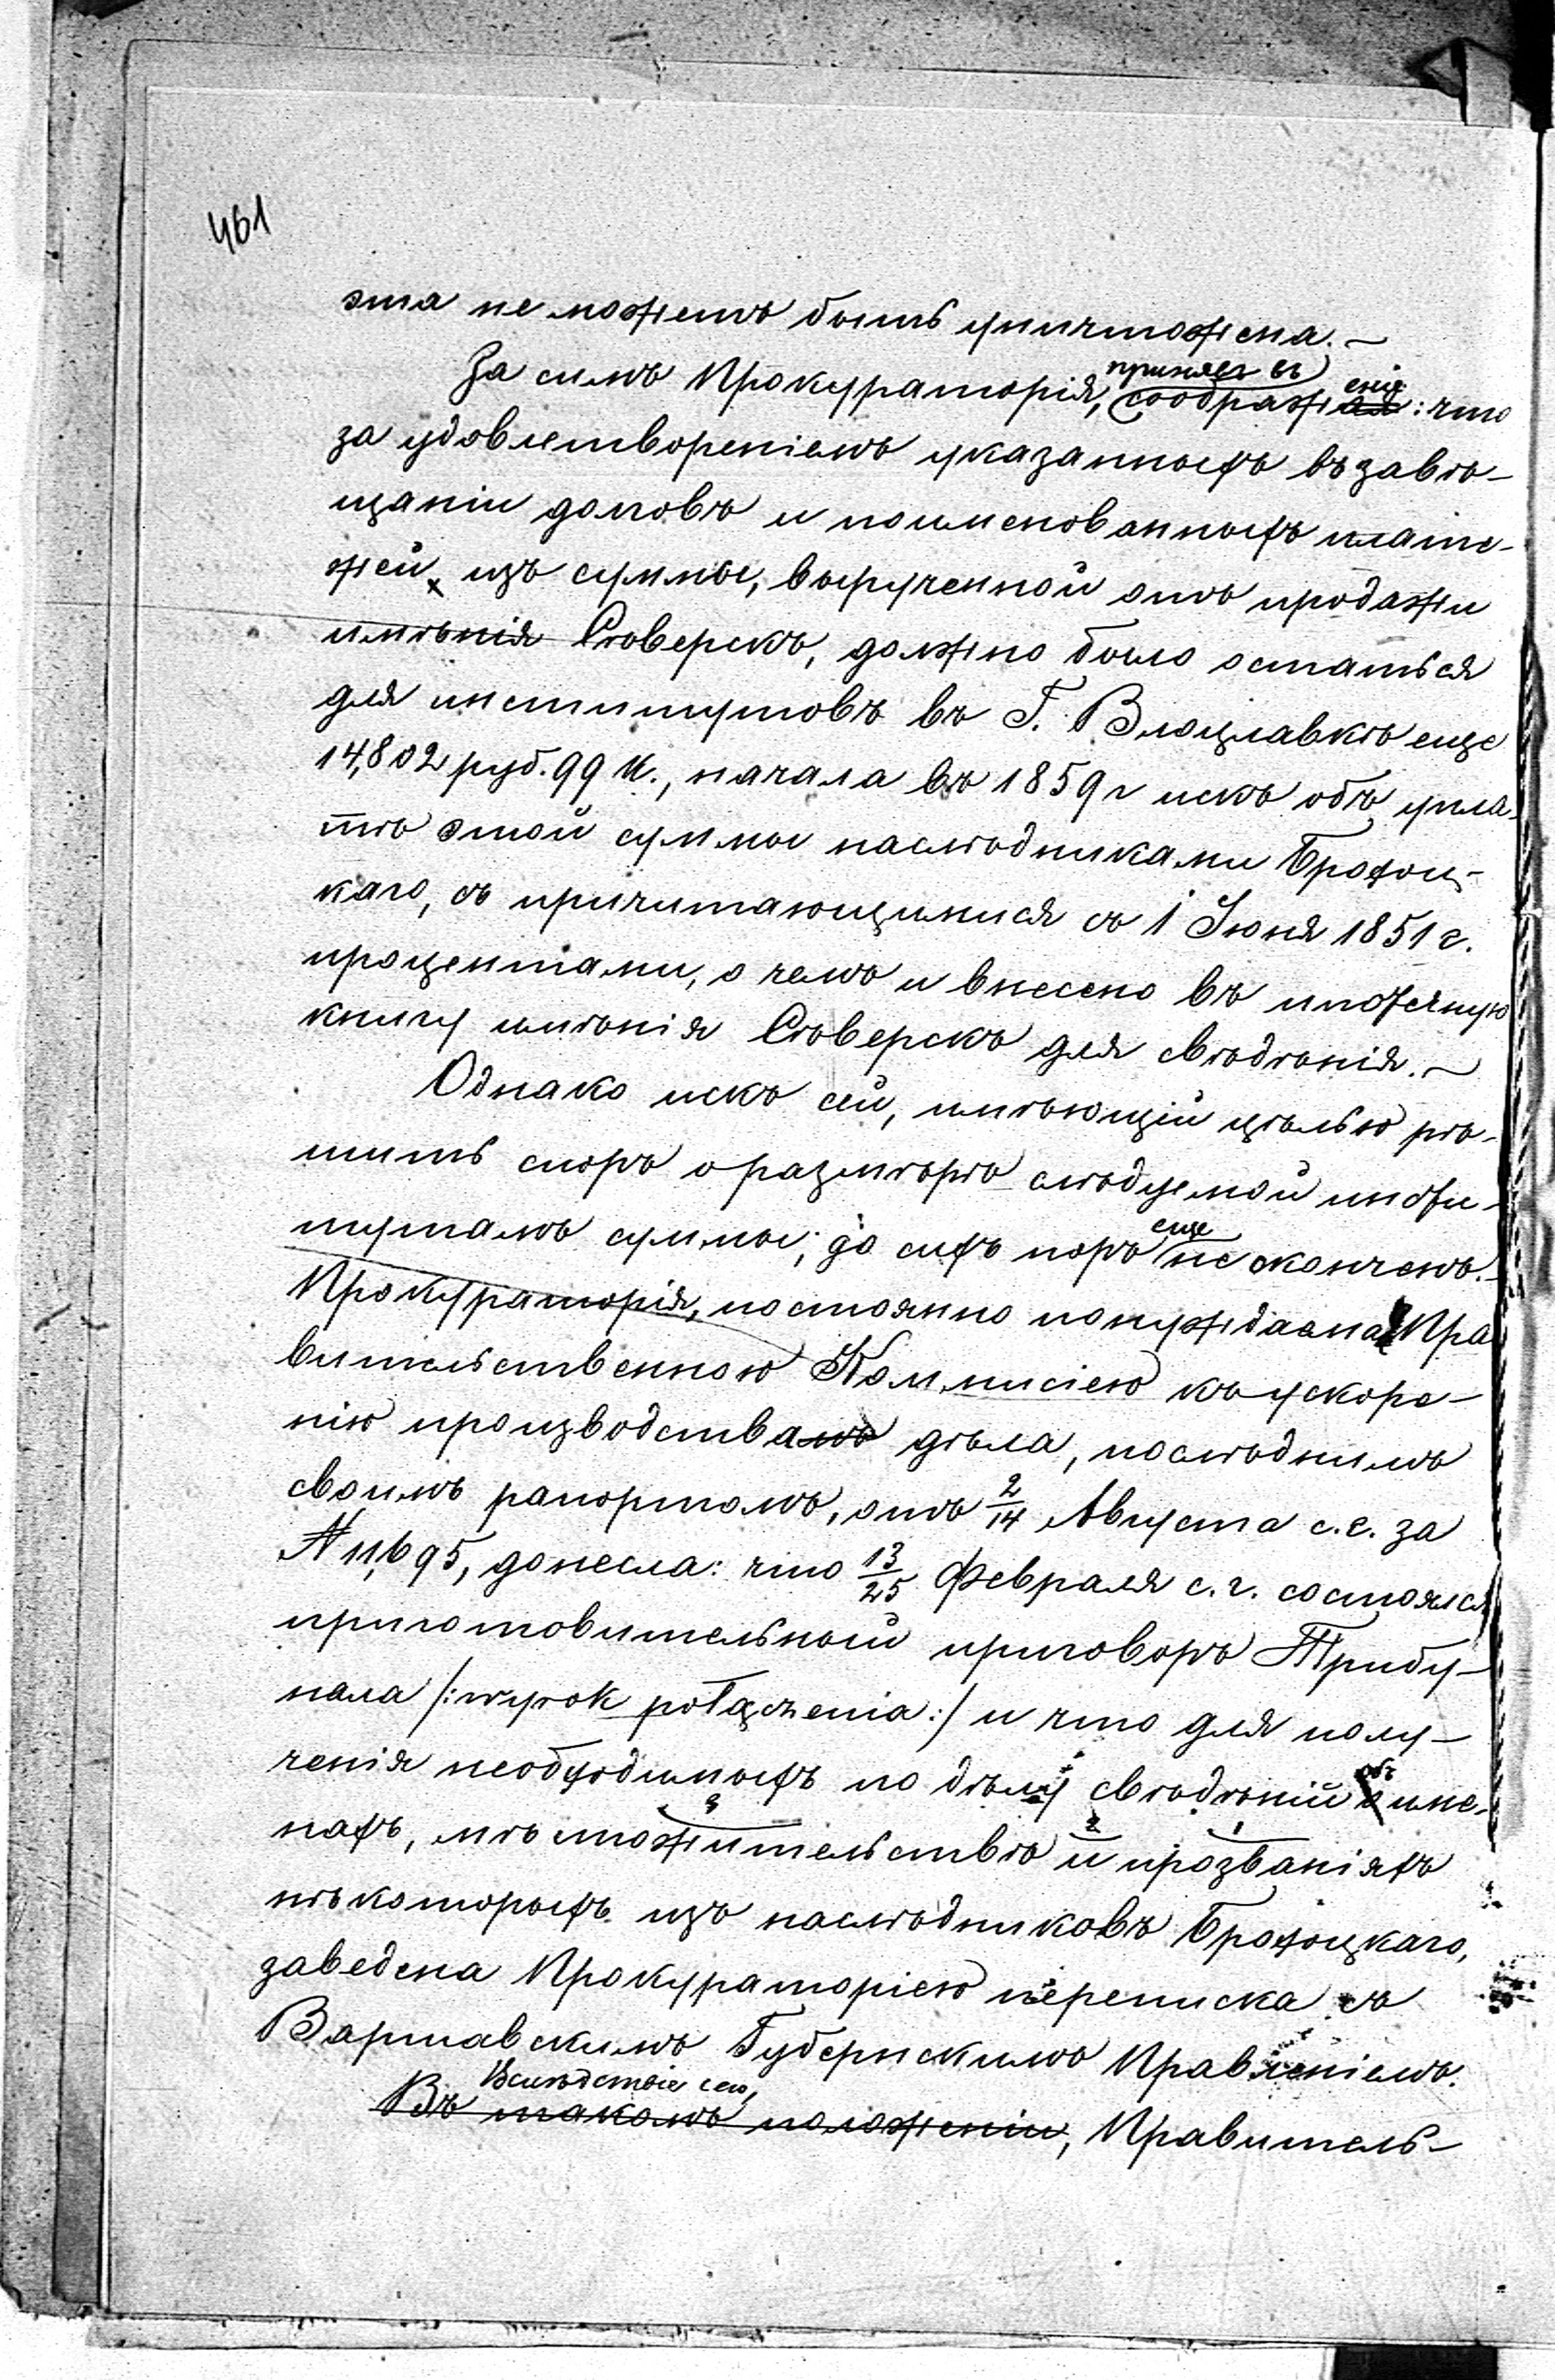 461
эта не можетъ быть уничтожена.—
За симъ Прокураторія, принявъ въ соображеніе: что
за удовлетвореніемъ указанныхъ въ завѣ-
щаніи долговъ и поименованныхъ плате-
жей изъ суммы, вырученной отъ продажи
имѣнія Сѣверскъ, должно было остаться
для институтовъ въ Г. Влоцлавкѣ еще
14,802 руб. 99 к., начала въ 1859 г искъ объ упла-
тѣ этой суммы наслѣдниками Брохоц-
каго, съ причитающимися съ 1 Іюня 1851 г.
процентами, о чемъ и внесено въ ипотечную
книгу имѣнія Сѣверскъ для свѣдѣнія.—
Однако искъ сей, имѣющій цѣлью рѣ-
шить споръ о размѣрѣ слѣдуемой инсти-
тутамъ суммы, до сихъ поръ еще не оконченъ.—
Прокураторія, постоянно понуждаема Пра
вительственною Коммисіею къ ускоре-
нію производства дѣла, послѣднимъ
своимъ рапортомъ, отъ 2/14 Августа с.г. за
N 11,695, донесла: что 13/25 Февраля с.г. состоялся
приготовительный приговоръ Трибу-
нала /:wyrok połączenia:/ и что для полу-
ченія необходимыхъ по дѣлу свѣдѣній объ име-
нахъ, мѣстожительствѣ и прозваніяхъ
нѣкоторыхъ изъ наслѣдниковъ Брохоцкаго,
заведена Прокураторіею переписка съ
Варшавскимъ Губернскимъ Правленіемъ.
Вслѣдствіе сего,
Въ такомъ положеніи, Правитель-